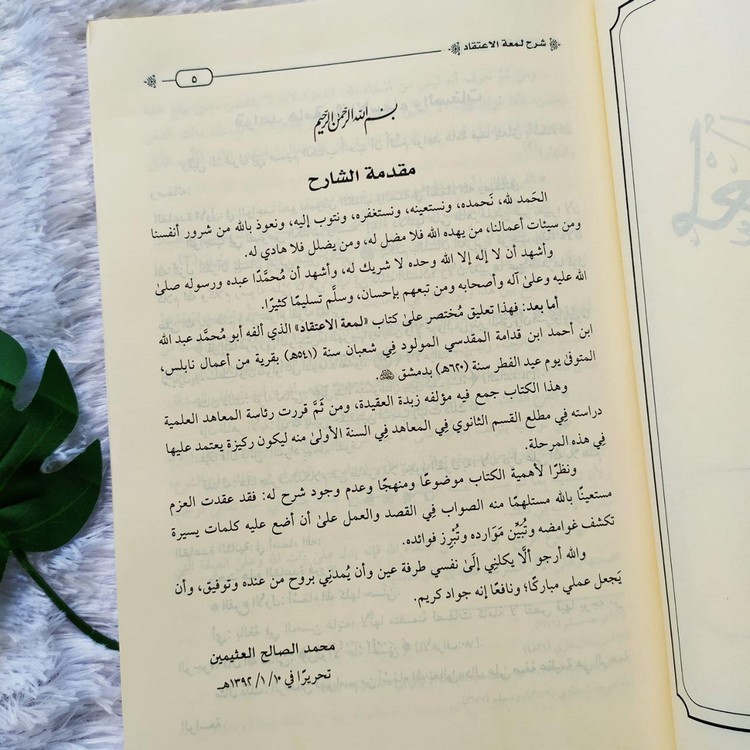 شرح لمعة الاعتقاد
٥
بسم الله الرحمن الرحيم
مقدمة الشارح
الحَمد لله، نَحمده، ونستعينه، ونستغفره، ونتوب إليه، ونعوذ بالله من شرور أنفسنا
ومن سيئات أعمالنا، من يهده الله فلا مضل له، ومن يضلل فلا هادي له.
وأشهد أن لا إله إلا الله وحده لا شريك له، وأشهد أن مُحمَّدًا عبده ورسوله صلىٰ
الله عليه وعلىٰ آله وأصحابه ومن تبعهم بإحسان، وسلَّم تسليمًا كثيرًا.
أما بعد: فهذا تعليق مُختصر علىٰ كتاب «لمعة الاعتقاد» الذي ألفه أبو مُحمَّد عبد الله
ابن أحمد ابن قدامة المقدسي المولود فِي شعبان سنة (٥٤١هـ) بقرية من أعمال نابلس،
المتوفىٰ يوم عيد الفطر سنة (٦٢٠هـ) بدمشق.
وهذا الكتاب جمع فيه مؤلفه زبدة العقيدة، ومن ثَمَّ قررت رئاسة المعاهد العلمية
دراسته فِي مطلع القسم الثانوي فِي المعاهد فِي السنة الأولىٰ منه ليكون ركيزة يعتمد عليها
فِي هذه المرحلة.
ونظرًا لأهمية الكتاب موضوعًا ومنهجًا وعدم وجود شرح له: فقد عقدت العزم
مستعينًا بالله مستلهمًا منه الصواب فِي القصد والعمل علىٰ أن أضع عليه كلمات يسيرة
تكشف غوامضه وتُبيِّن مَوَارده وتُبْرِز فوائده.
والله أرجو ألَّا يكلني إلَىٰ نفسي طرفة عين وأن يُمدنِي بروح من عنده وتوفيق، وأن
يَجعل عملي مباركًا؛ ونافعًا إنه جواد كريم.
محمد الصالح العثيمين
تحريرًا في ١٣٩٢/١/١٠هـ